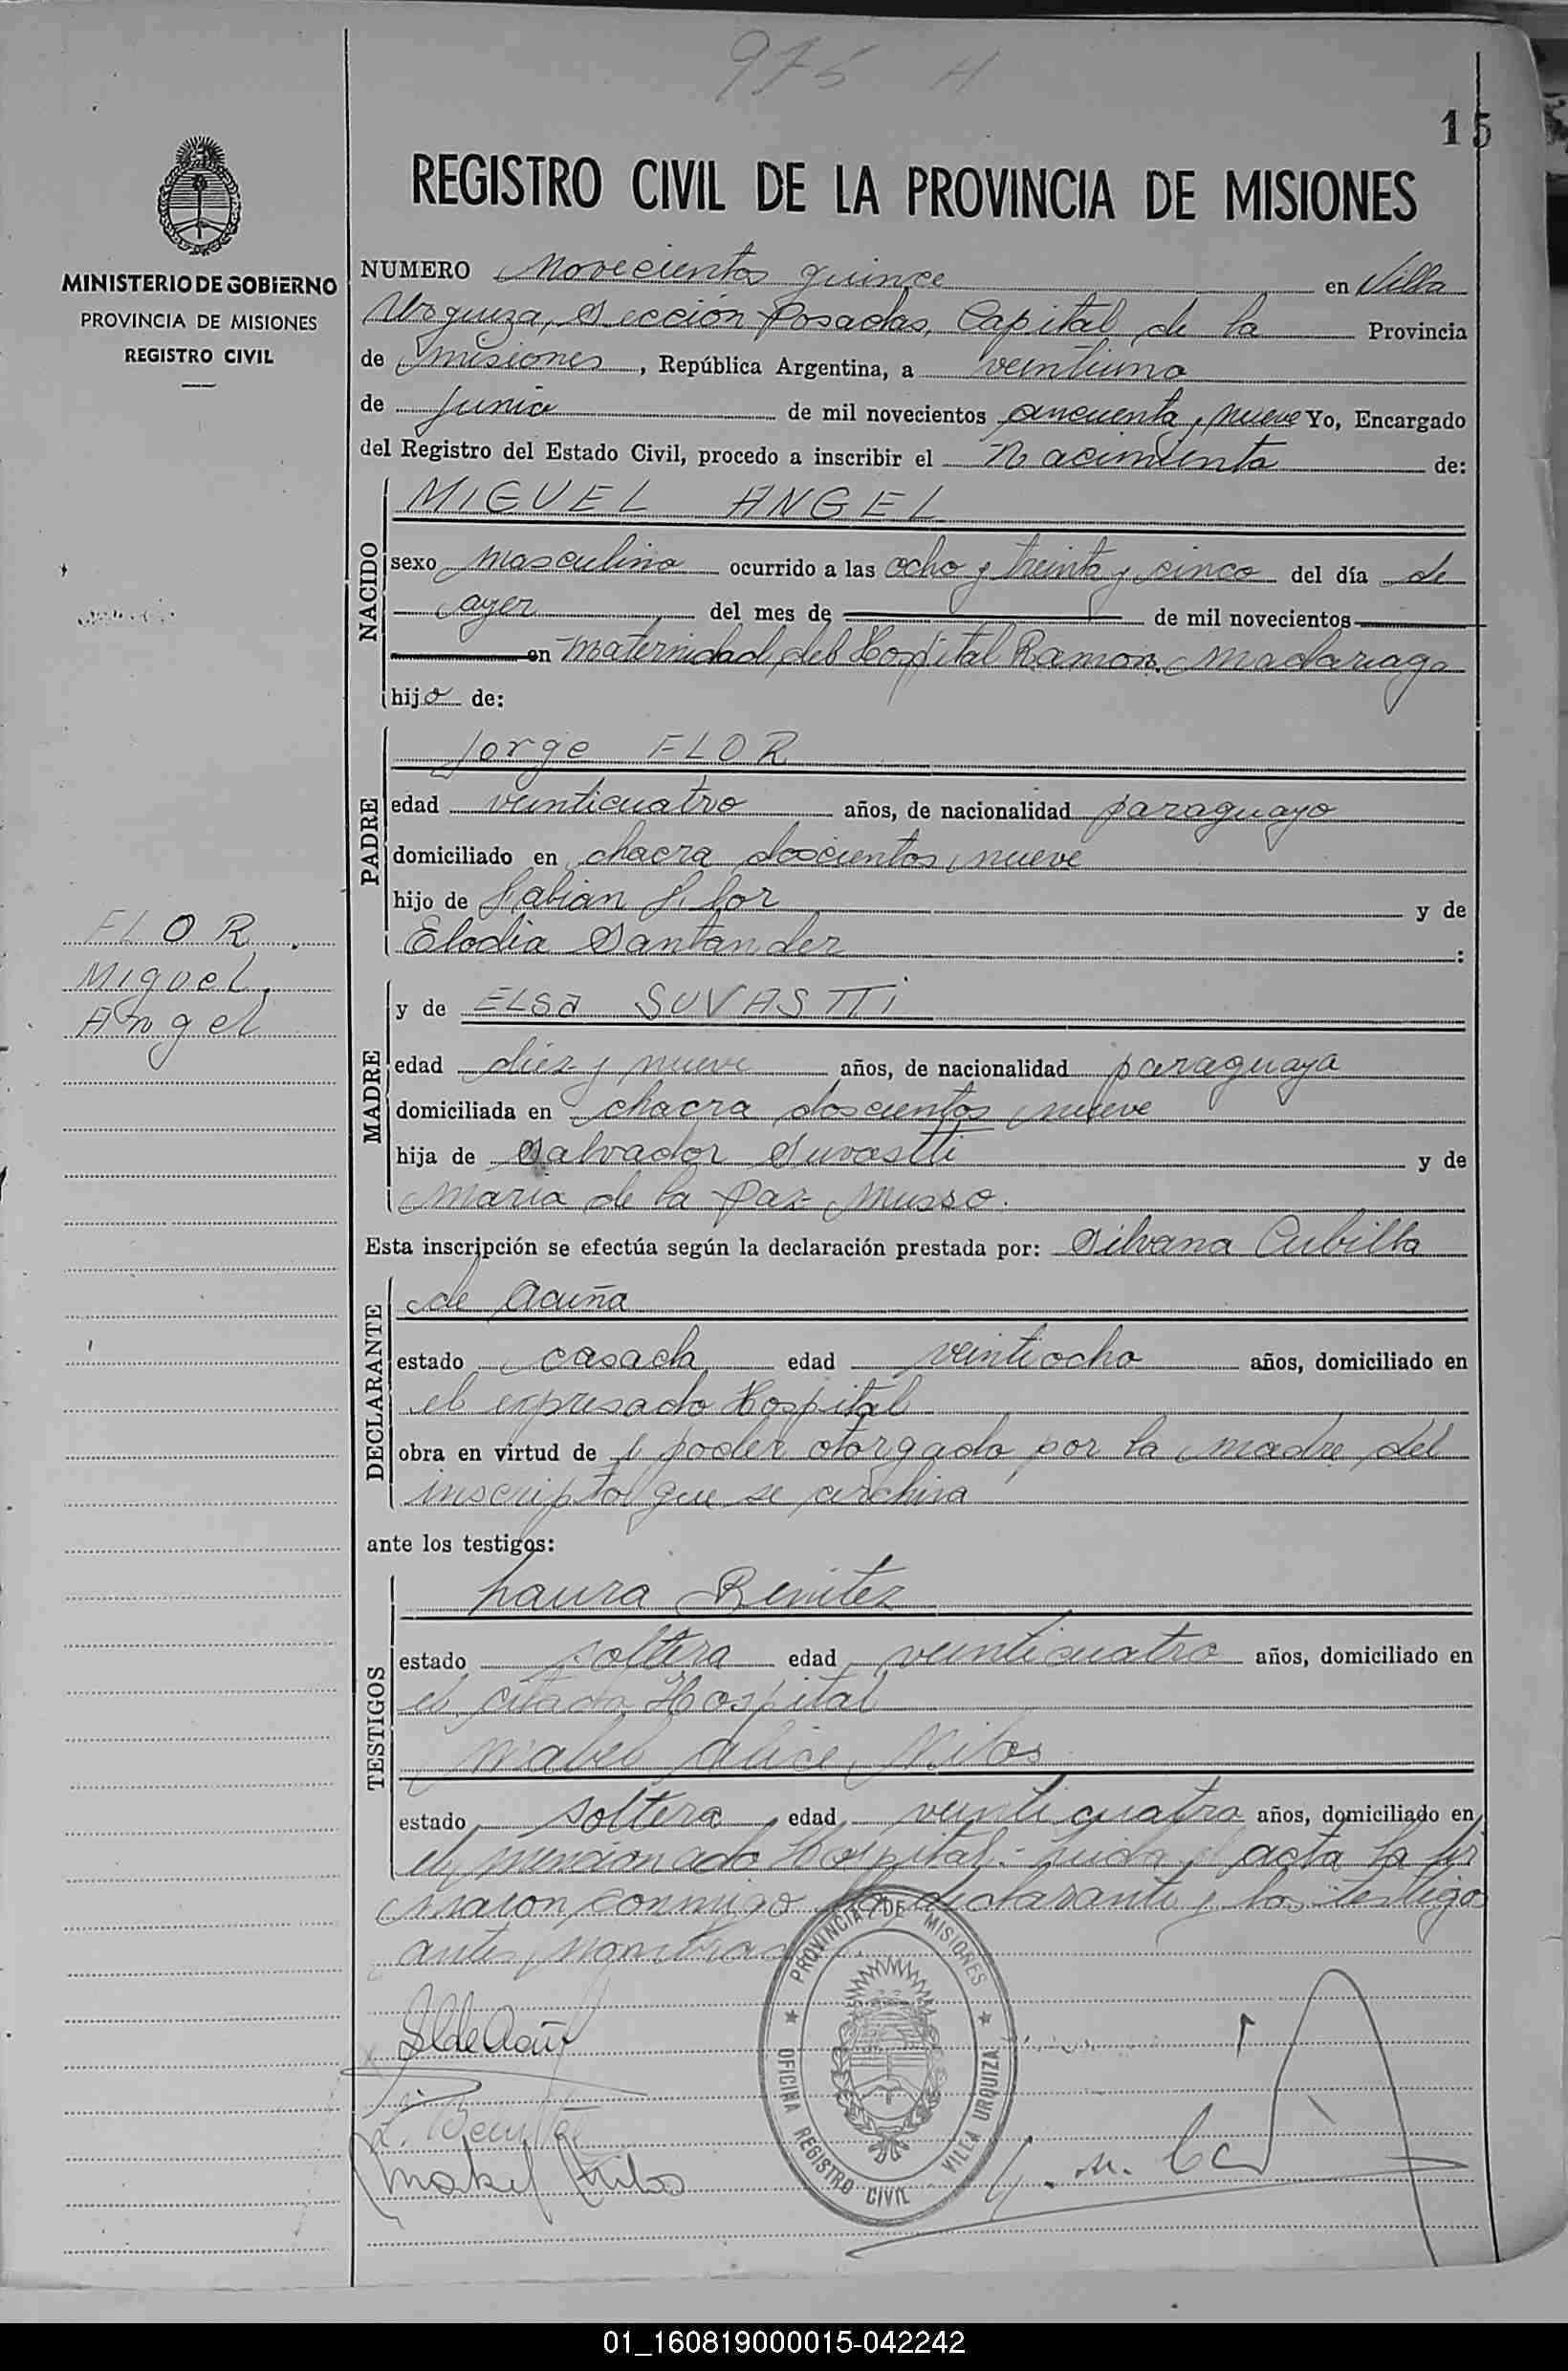 975 H
15
REGISTRO CIVIL DE LA PROVINCIA DE MISIONES
MINISTERIO DE GOBIERNO
PROVINCIA DE MISIONES
REGISTRO CIVIL
NUMERO Novecientos quince en Villa
Urquiza, Sección Posadas, Capital de la Provincia
de Misiones, República Argentina, a veintiuno
de junio de mil novecientos cincuenta y nueve Yo, Encargado
del Registro del Estado Civil, procedo a inscribir el Nacimiento de:
NACIDO
MIGUEL ANGEL
sexo masculino ocurrido a las ocho y treinta y cinco del día de
ayer del mes de de mil novecientos
en maternidad del Hospital Ramon Madariaga
hijo de:
PADRE
Jorge FLOR
edad veinticuatro años, de nacionalidad paraguayo
domiciliado en chacra doscientos nueve
hijo de Fabian Flor y de
Elodia Santander :
FLOR.
Miguel,
Angel
MADRE
y de ELSA SUVASTTI
edad diez y nueve años, de nacionalidad paraguaya
domiciliada en chacra doscientos nueve
hija de Salvador Suvastti y de
Maria de la Paz Musso.
Esta inscripción se efectúa según la declaración prestada por: Silvana Cubilla
DECLARANTE
de Acuña
estado casada edad veintiocho años, domiciliado en
el expresado Hospital
obra en virtud de poder otorgado por la madre del
inscripto que se archiva
ante los testigos:
TESTIGOS
Laura Benitez
estado soltera edad veinticuatro años, domiciliado en
el citado Hospital
Mabel Alice Milos
estado soltera edad veinticuatro años, domiciliado en
el mencionado Hospital.- Leida el acta la fir
maron conmigo la declarante y los testigos
antes nombrados
PROVINCIA DE MISIONES
OFICINA REGISTRO CIVIL VILLA URQUIZA
S C de Acuña
L. Benitez
Mabel Milos
01_160819000015-042242